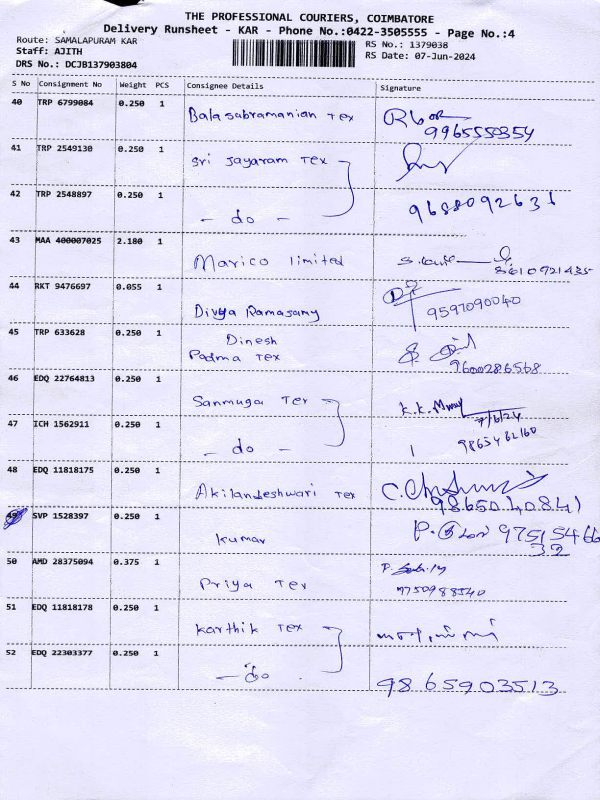 THE PROFESSIONAL COURIERS, COIMBATORE
Delivery Runsheet - KAR - Phone No.:0422-3505555 - Page No.:4
Route: SAMALAPURAM KAR
RS No.: 1379038
Staff: AJITH
RS Date: 07-Jun-2024
DRS No.: DCJB137903804
S No Consignment No Weight PCS Consignee Details Signature
40 TRP 6799084 0.250 1 Balasabramanian Tex
9965550354
41 TRP 2549130 0.250 1 Sri Jayaram Tex
42 TRP 2548897 0.250 1 - do - 9688092631
43 MAA 400007025 2.180 1 Marico limited
8610921435
44 RKT 9476697 0.055 1 Divya Ramasamy 9597090040
45 TRP 633628 0.250 1 Dinesh
Padma Tex 9600286568
46 EDQ 22764813 0.250 1 Sanmuga Tex K.K.
7/6/24
47 ICH 1562911 0.250 1 - do - 9865462160
48 EDQ 11818175 0.250 1 Akilandeshwari Tex
9865040841
49 SVP 1528397 0.250 1 Kumar 97515466
32
50 AMD 28375094 0.375 1 Priya Tex
9750988540
51 EDQ 11818178 0.250 1 Karthik Tex
52 EDQ 22303377 0.250 1 - do - 9865903513